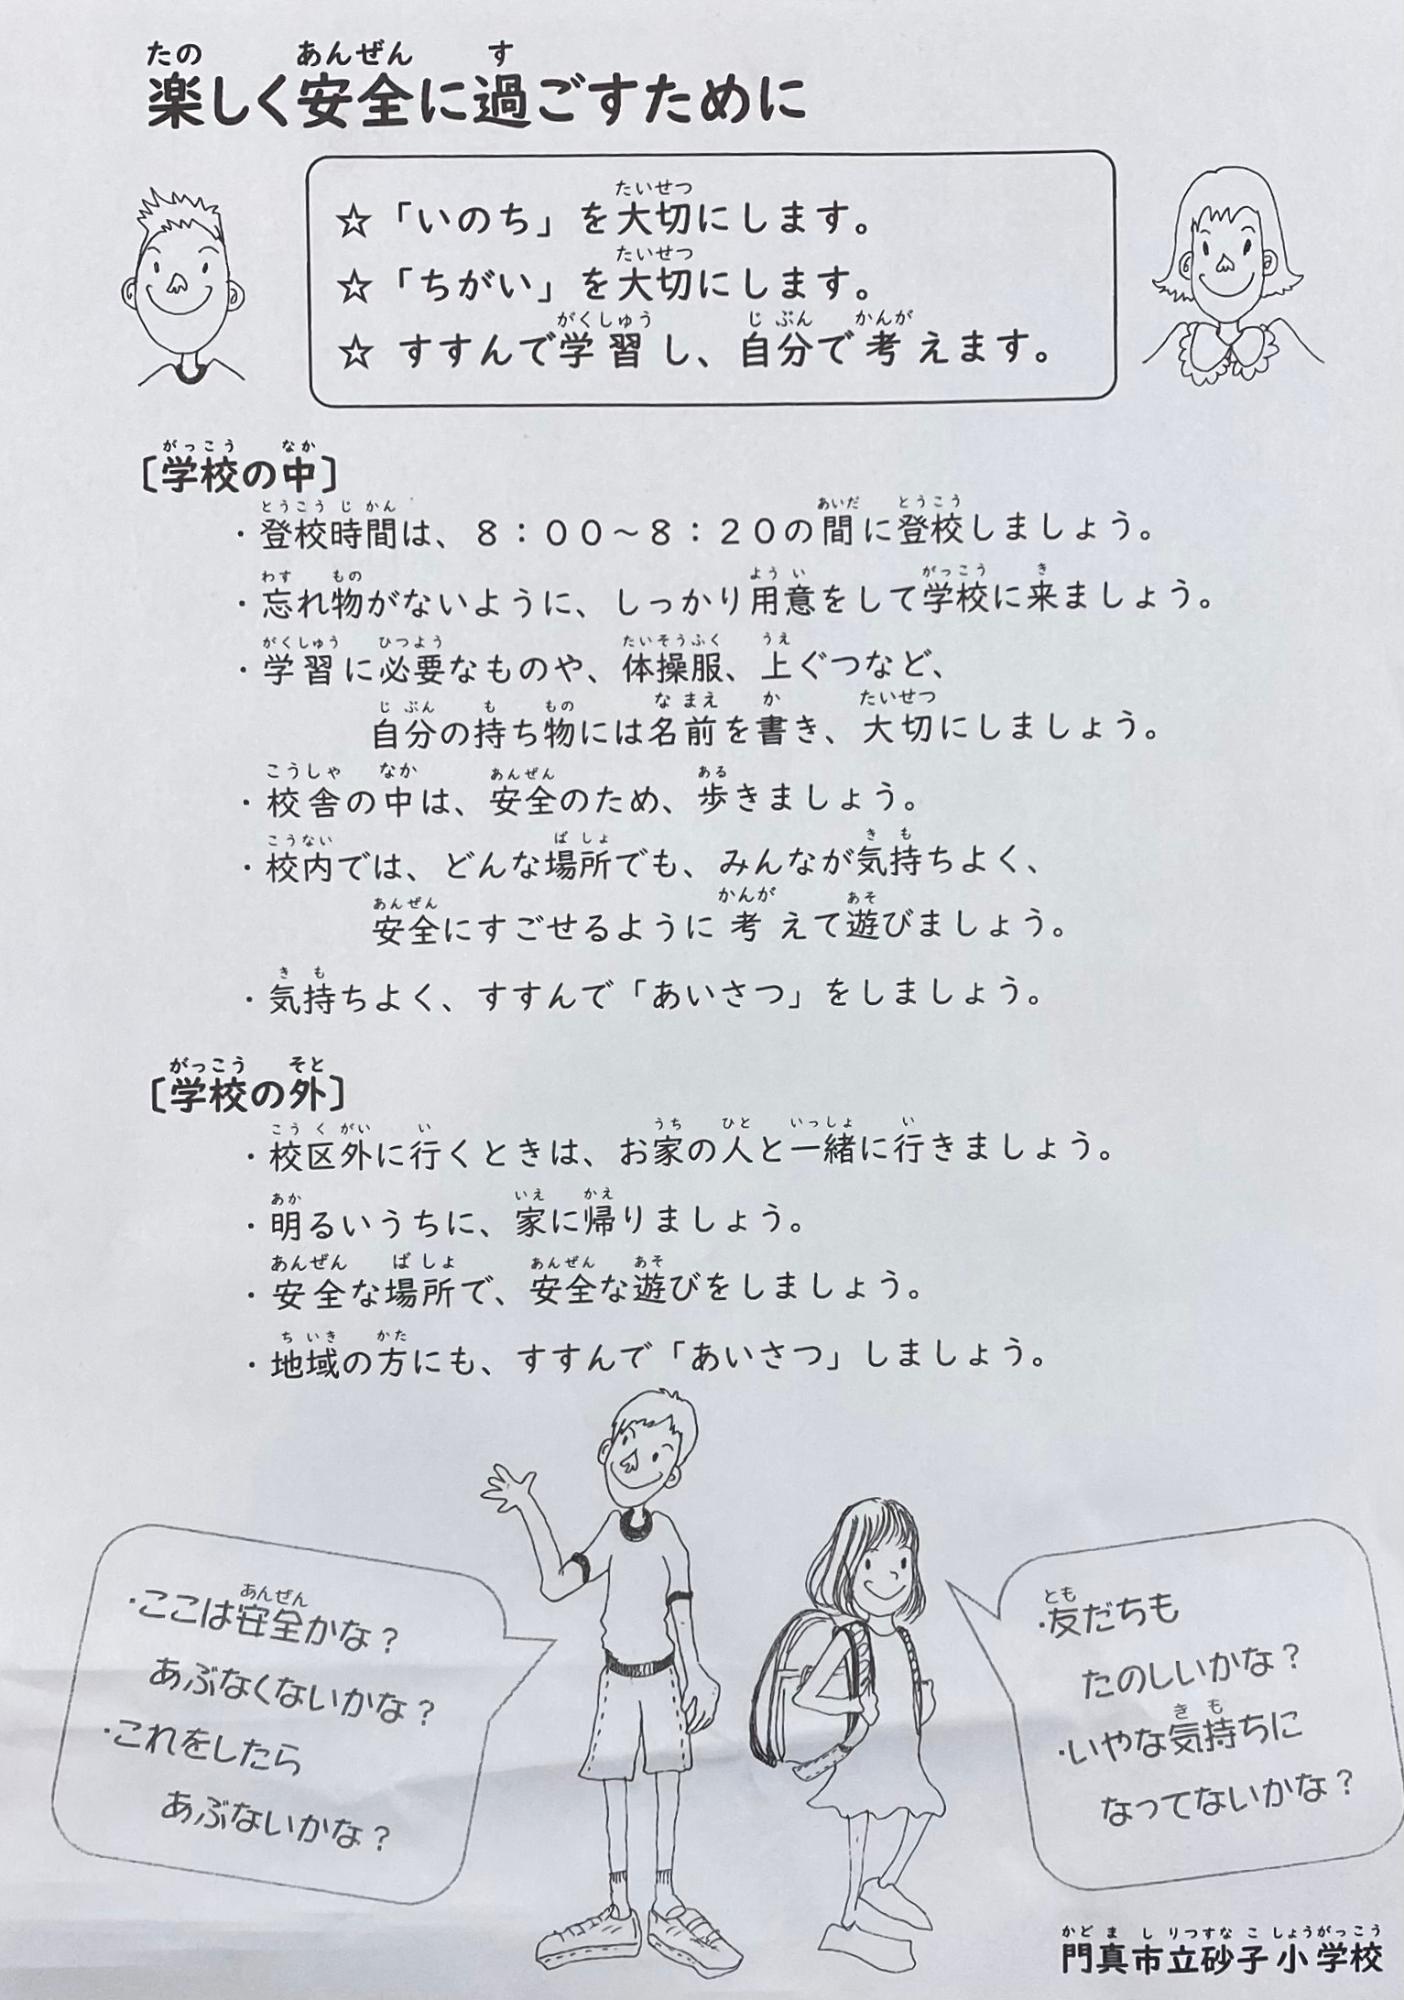 楽しく安全に過ごすために
☆「いのち」を大切にします。
☆「ちがい」を大切にします。
☆ すすんで学習し、自分で考えます。
〔学校の中〕
・登校時間は、８：００～８：２０の間に登校しましょう。
・忘れ物がないように、しっかり用意をして学校に来ましょう。
・学習に必要なものや、体操服、上ぐつなど、
自分の持ち物には名前を書き、大切にしましょう。
・校舎の中は、安全のため、歩きましょう。
・校内では、どんな場所でも、みんなが気持ちよく、
安全にすごせるように考えて遊びましょう。
・気持ちよく、すすんで「あいさつ」をしましょう。
〔学校の外〕
・校区外に行くときは、お家の人と一緒に行きましょう。
・明るいうちに、家に帰りましょう。
・安全な場所で、安全な遊びをしましょう。
・地域の方にも、すすんで「あいさつ」しましょう。
・ここは安全かな？
あぶなくないかな？
・これをしたら
あぶないかな？
・友だちも
たのしいかな？
・いやな気持ちに
なってないかな？
門真市立砂子小学校